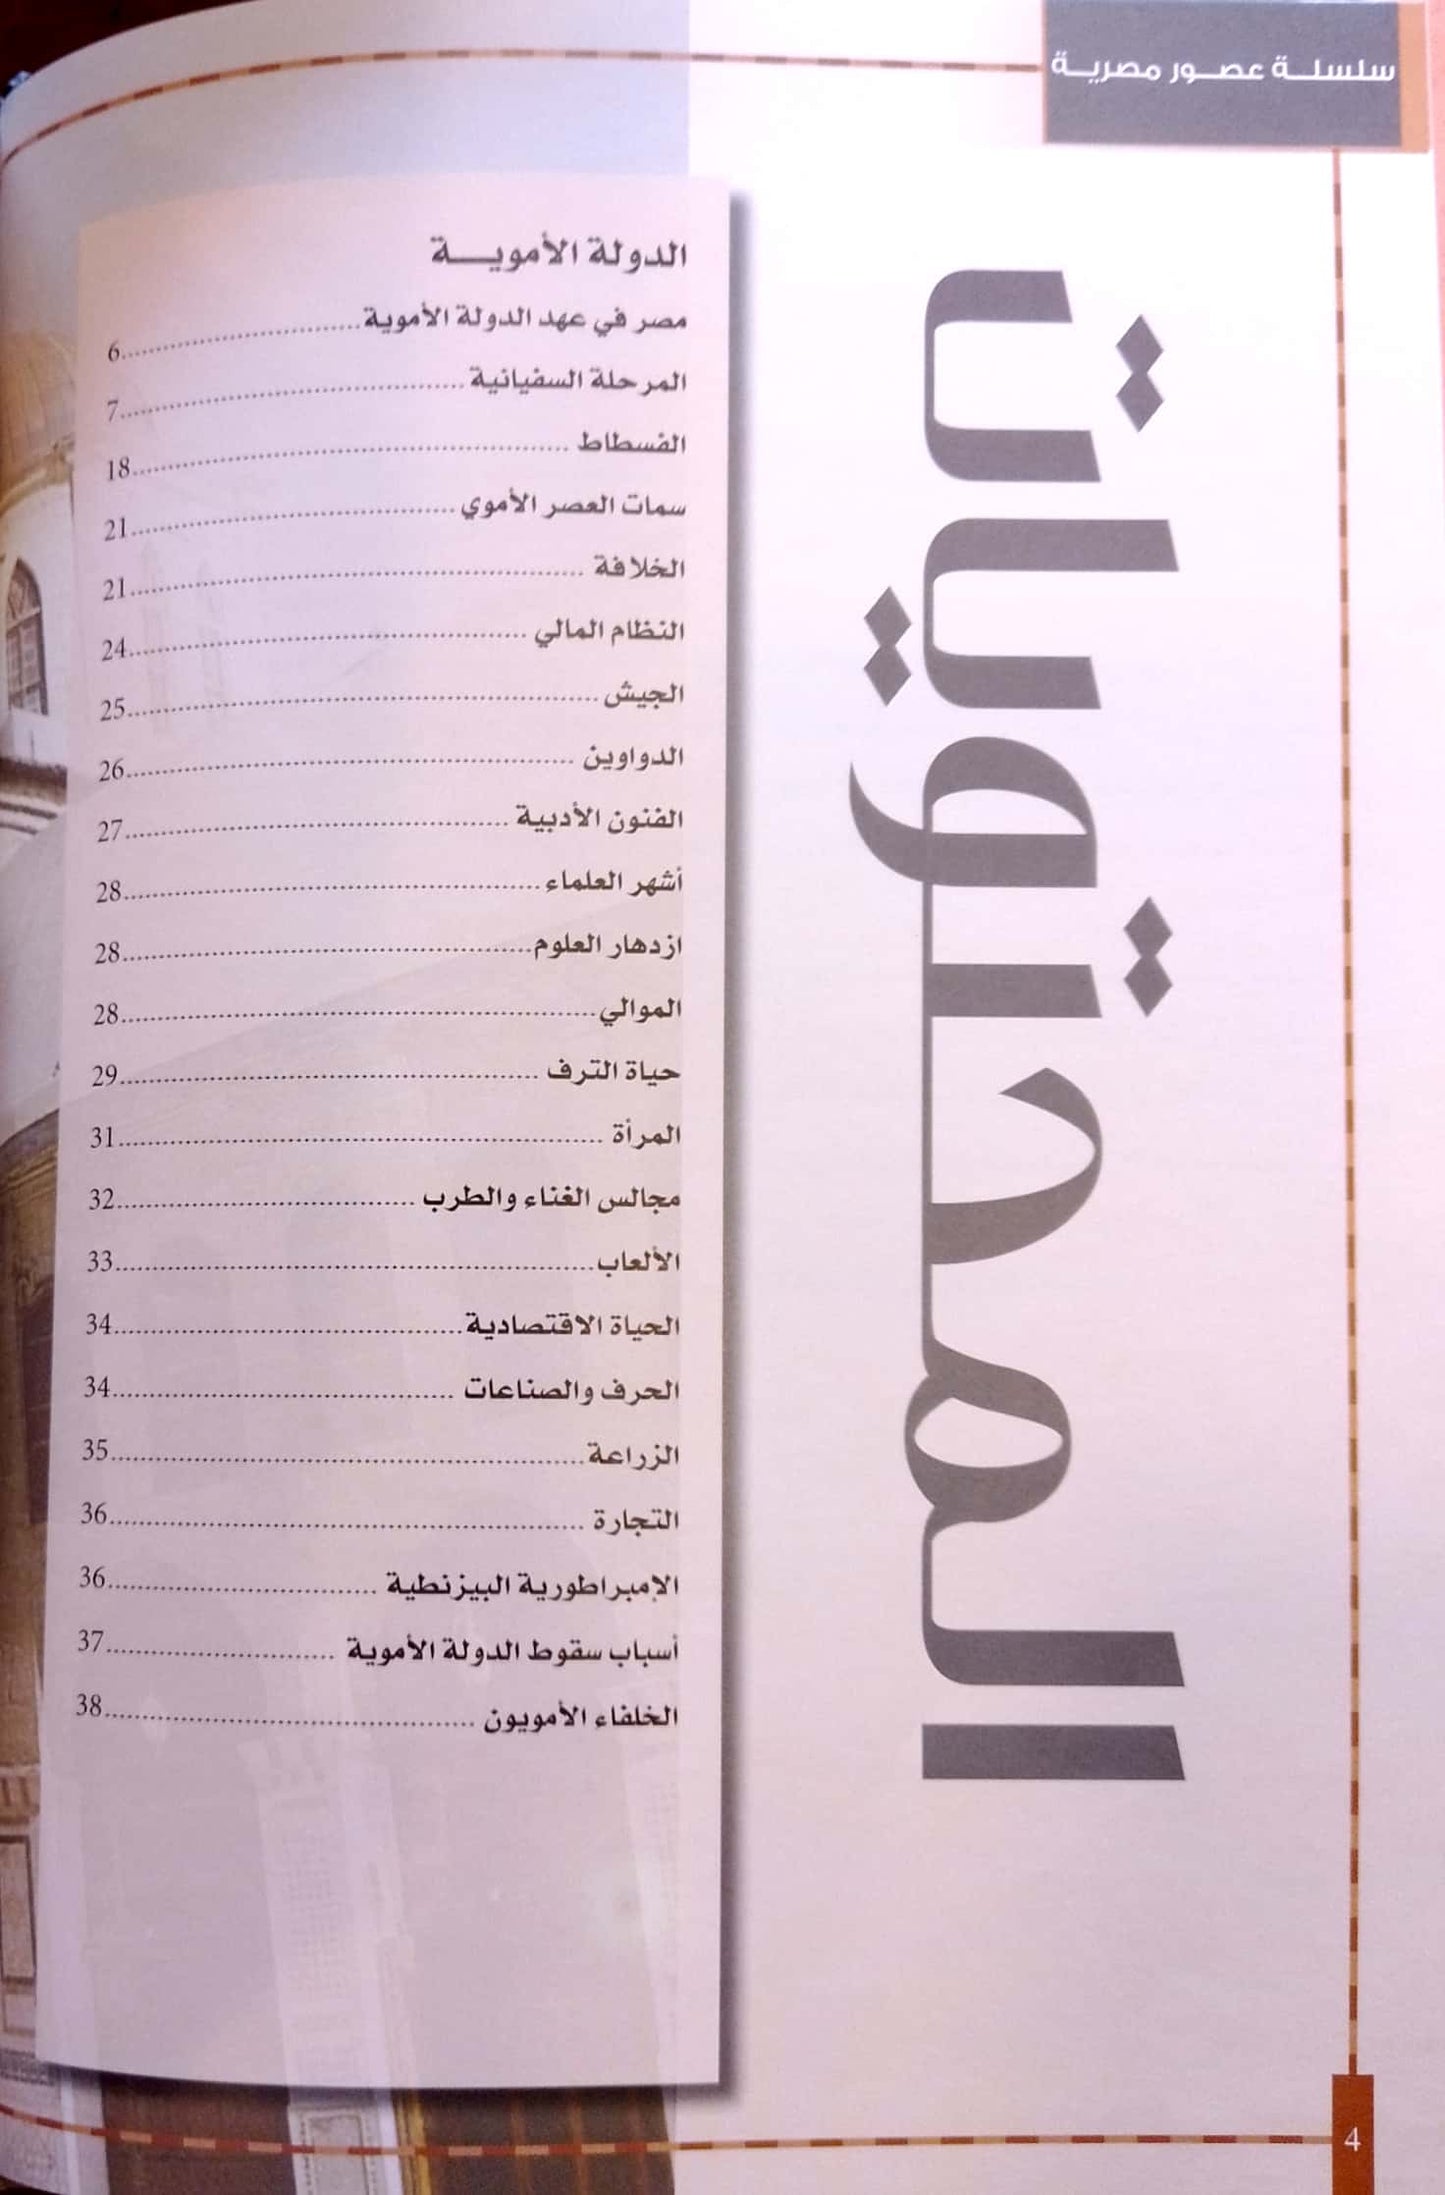 سلسلة عصور مصرية
المحتويات
الدولة الأموية
مصر في عهد الدولة الأموية 6
المرحلة السفيانية 7
الفسطاط 18
سمات العصر الأموي 21
الخلافة 21
النظام المالي 24
الجيش 25
الدواوين 26
الفنون الأدبية 27
أشهر العلماء 28
ازدهار العلوم 28
الموالي 28
حياة الترف 29
المرأة 31
مجالس الغناء والطرب 32
الألعاب 33
الحياة الاقتصادية 34
الحرف والصناعات 34
الزراعة 35
التجارة 36
الإمبراطورية البيزنطية 36
أسباب سقوط الدولة الأموية 37
الخلفاء الأمويون 38
4